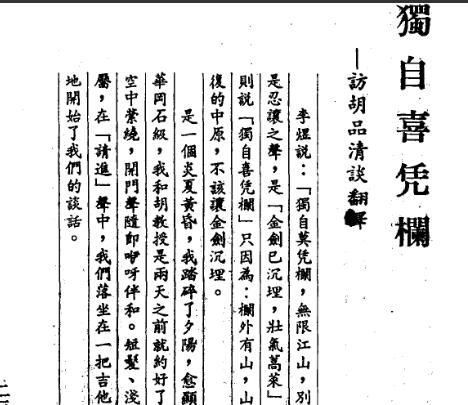 獨自喜凭欄
—訪胡品清談翻譯
李煜説:「獨自莫凭欄,無限江山,別
是忍讓之聲,是「金劍已沉埋,壯氣蒿萊」
則説「獨自喜凭欄」只因為:欄外有山,山
復的中原,不該讓金劍沉埋。
是一個炎夏黃昏,我踏碎了夕陽,愈顯
華岡石級,我和胡教授是兩天之前就約好了
空中縈繞,開門聲隨即咿呀伴和。短髮、淺
靨,在「請進」聲中,我們落坐在一把吉他
地開始了我們的談話。